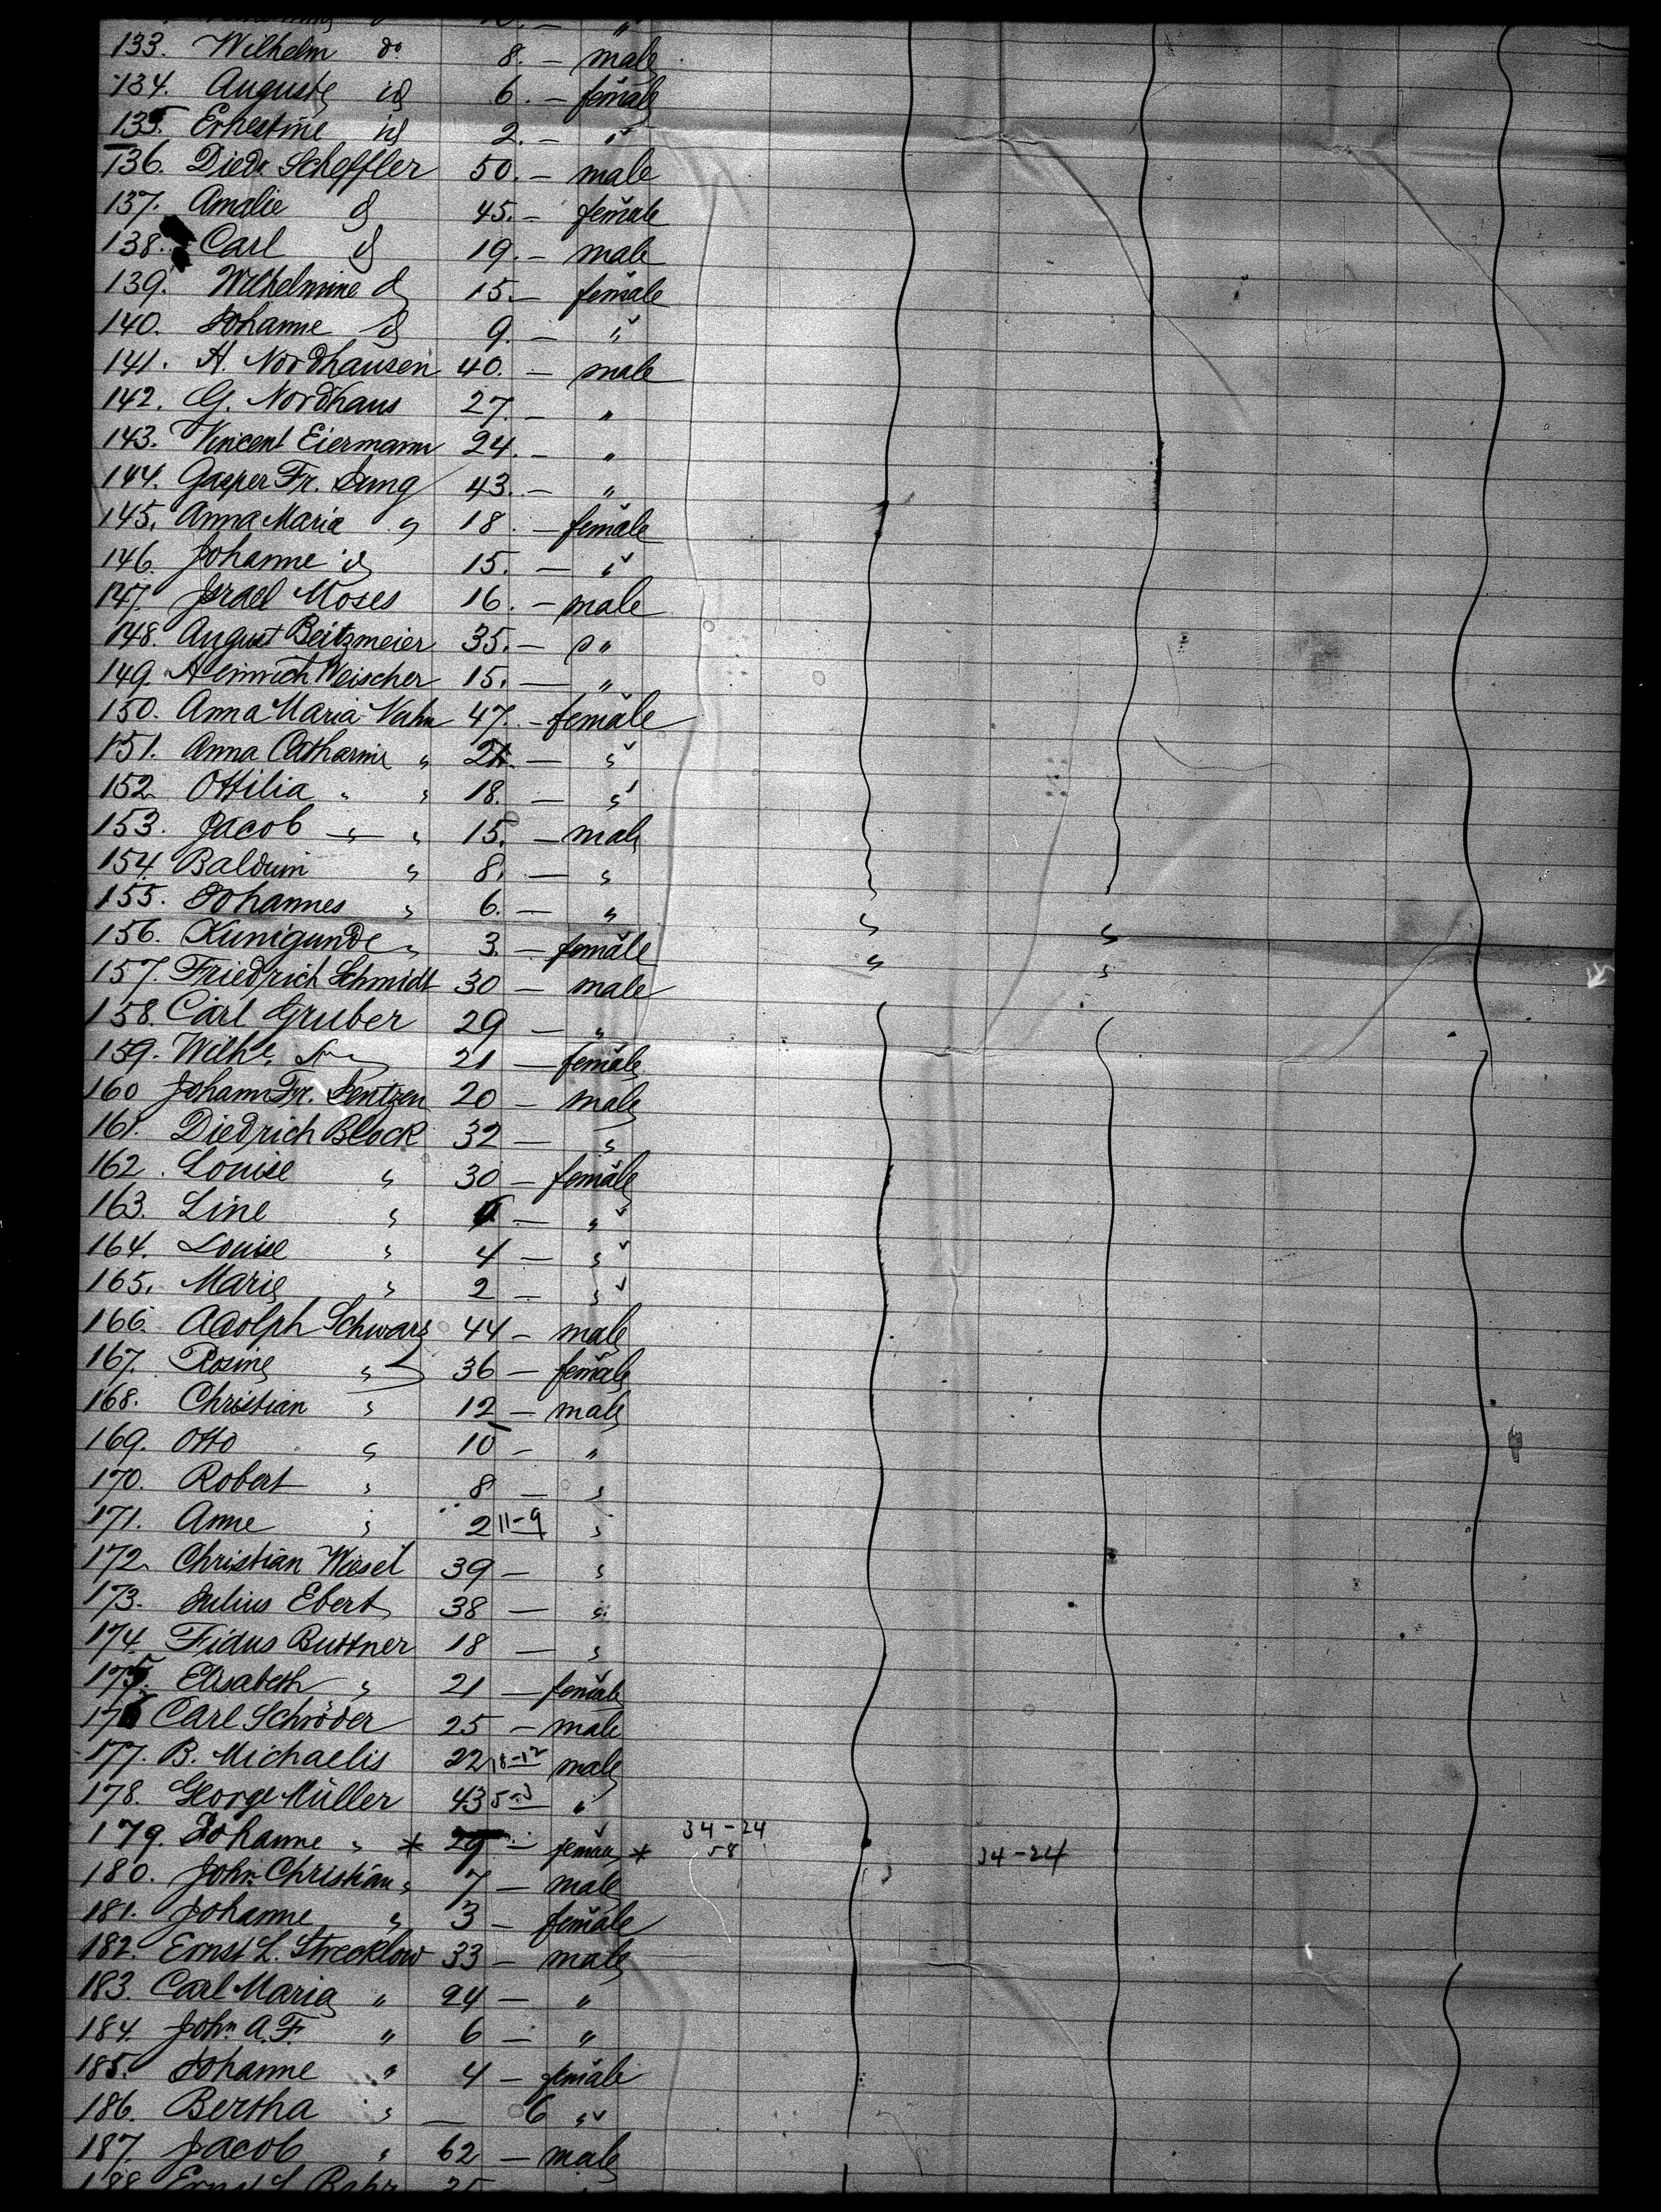 133. Wilhelm do 8. – male
134. Auguste id 6. – female
135. Ernestine id 2. – "
136. Diedr. Scheffler 50. – male
137. Amalie id 45. – female
138. Carl id 19. – male
139. Wilhelmine id 15. – female
140. Johanne id 9. – "
141. H. Nordhausen 40. – male
142. G. Nordhaus 27. – "
143. Vincent Eiermann 24. – "
144. Gasper Fr. Jung 43. – "
145. Anna Maria " 18. – female
146. Johanne id 15. – "
147. Israel Moses 16. – male
148. August Beitzmeier 35. – "
149. Heinrich Weischer 15. – "
150. Anna Maria Vahn 47. – female
151. Anna Catharine " – "
152. Ottilia " " 18. – "
153. Jacob " " 15. – male
154. Balduin " 8. – "
155. Johannes " 6. – "
156. Kunigunde " 3. – female
157. Friedrich Schmidt 30 – male
158. Carl Gruber 29 – "
159. Wilhe. 21 – female
160 Johann Fr. Jentzen 20 – male
161. Diedrich Block 32 – "
162. Louise " 30 – female
163. Line " – "
164. Louise " 4 – "
165. Marie " 2 – "
166. Adolph Schwarz 44 – male
167. Rosine " 36 – female
168. Christian " 12 – male
169. Otto " 10 – "
170. Robert " 8 – "
171. Anne " 2 11-9 "
172. Christian Wiesel 39 – "
173. Julius Ebert 38 – "
174. Fidus Buttner 18 – "
175. Elisabeth " 21 – female
176 Carl Schröder 25 – male
177. B. Michaelis 22 18-12 male
178. George Müller 43 5-3 "
179. Johanne " * 29 – female * 34-24
58 34-24
180. John Christian " 7 – male
181. Johanne " 3 – female
182. Ernst L. Strecklow 33 – male
183. Carl Maria " 24 – "
184. John A. F. " 6 – "
185. Johanne " 4 – female
186. Bertha " – 6 "
187. Jacob " 62 – male
188 Ernst L Bahr 25